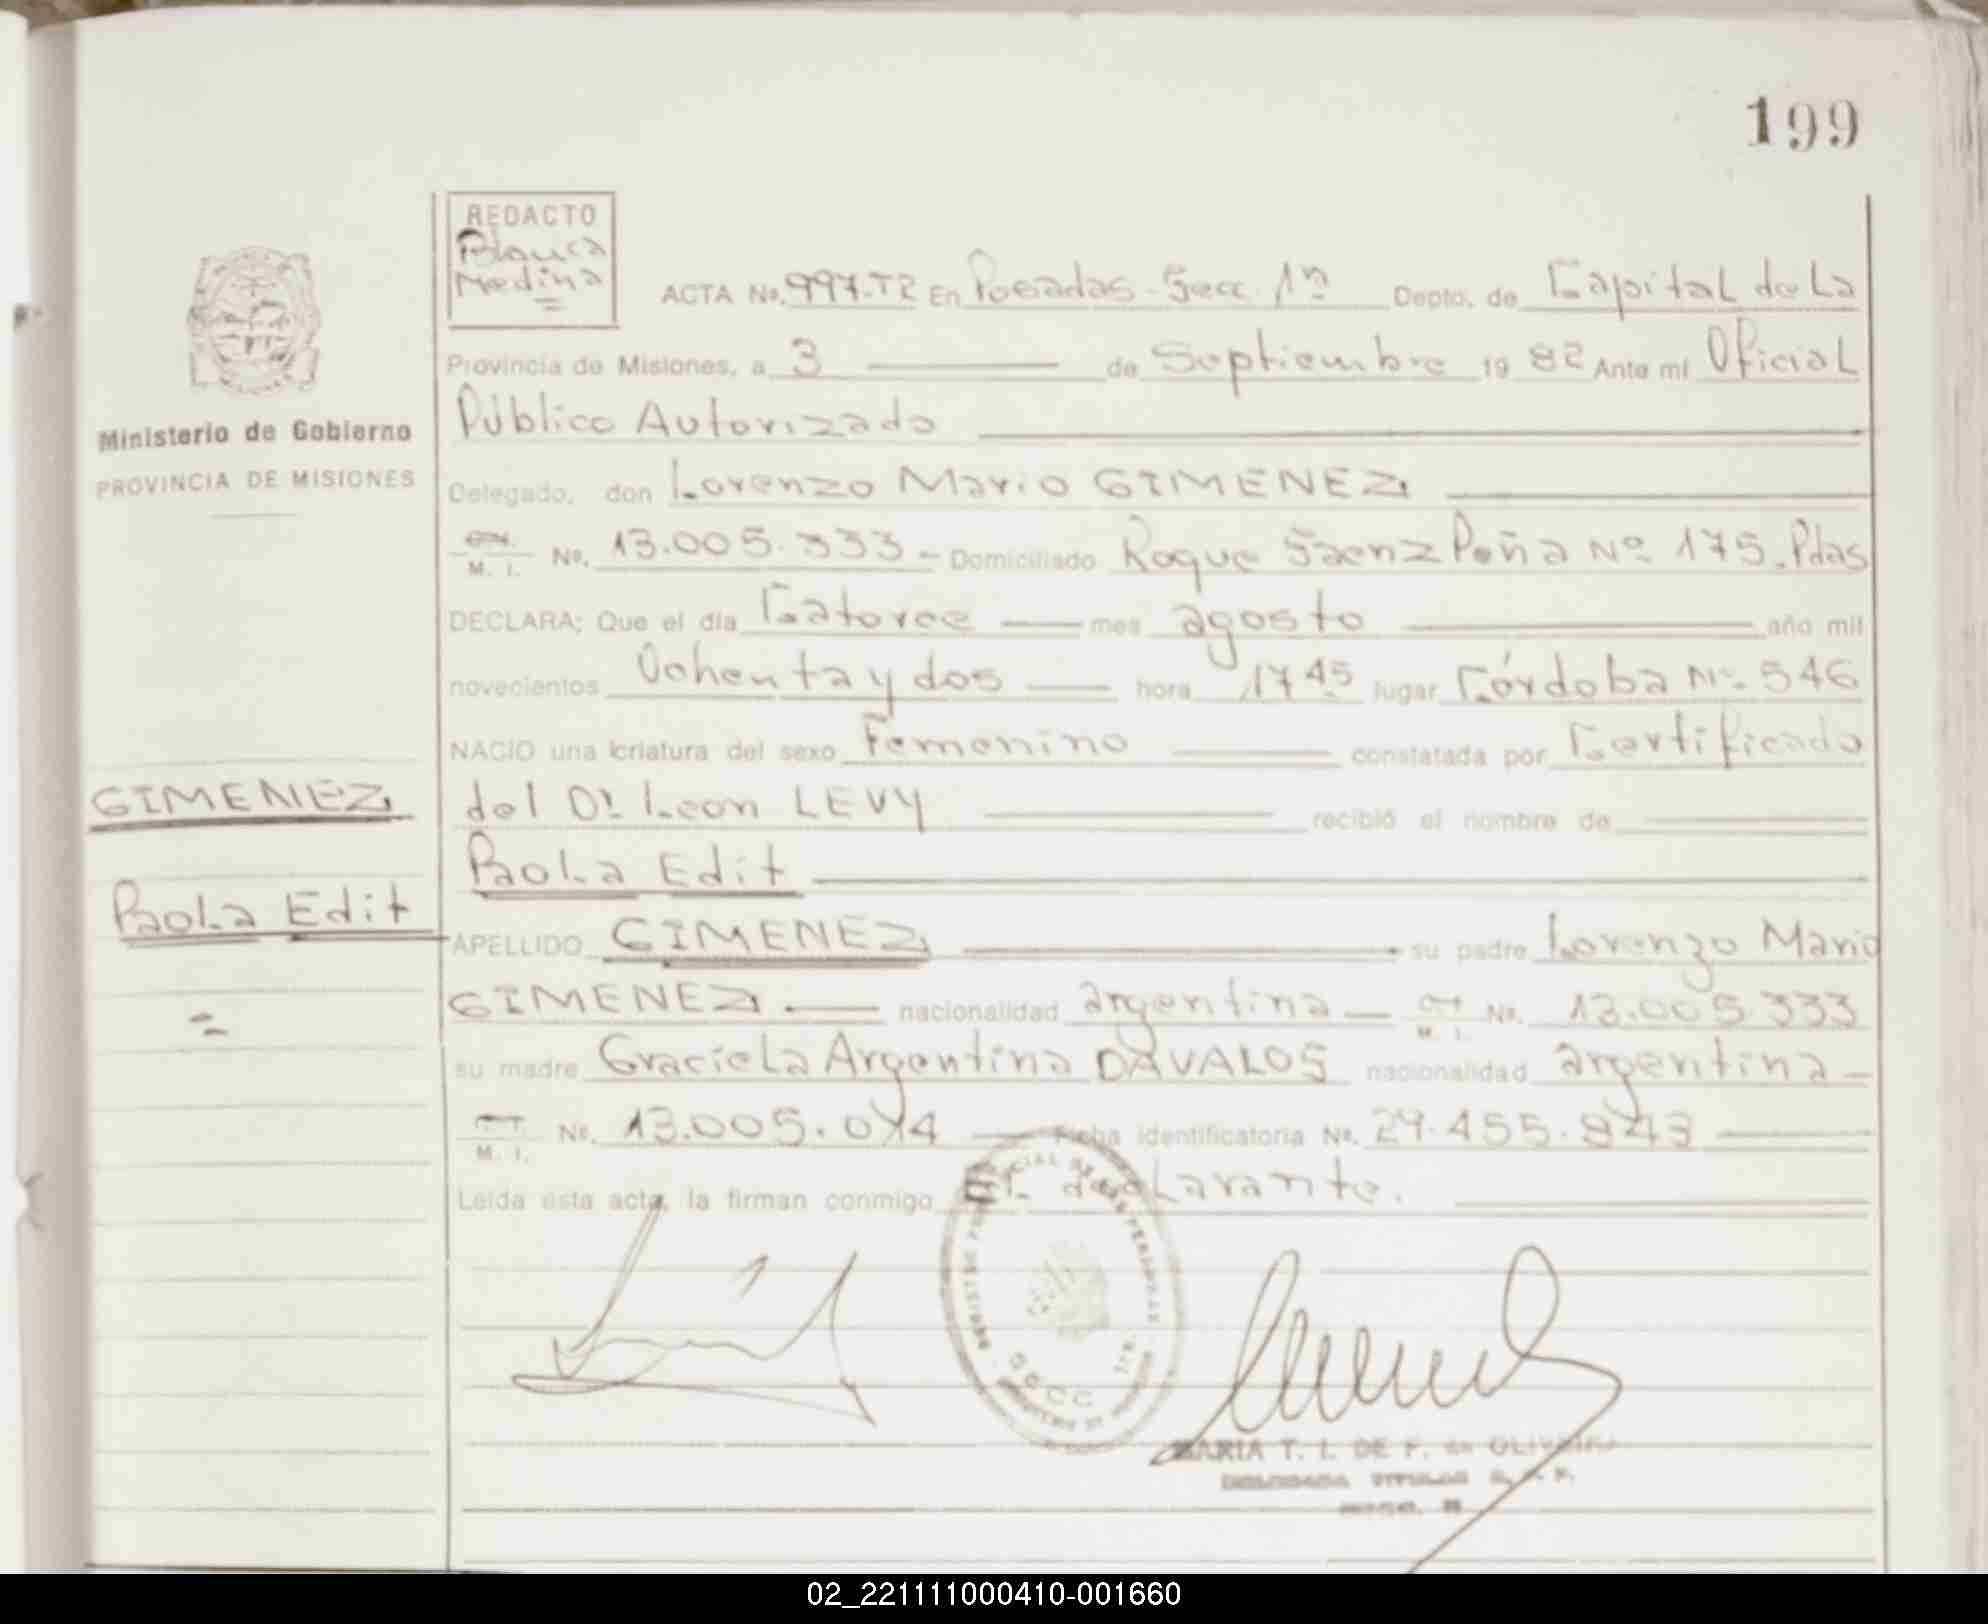 199
REDACTO
Blanca
Medina
ACTA No. 997-T2 En Posadas - Secc. 1ª Depto. de Capital de La
Provincia de Misiones, a 3 de Septiembre 19 82 Ante mí Oficial
Público Autorizado
Ministerio de Gobierno
PROVINCIA DE MISIONES
Delegado, don Lorenzo Mario GIMENEZ
M. I. No. 13.005.333 - Domiciliado Roque Saenz Peña Nº 175. Pdas
DECLARA; Que el día Catorce mes agosto año mil
novecientos Ochenta y dos hora 17 45 lugar Córdoba Nº 546
NACIO una criatura del sexo Femenino constatada por Certificado
GIMENEZ
del Dr. Leon LEVY recibió el nombre de
Paola Edit
Paola Edit
APELLIDO GIMENEZ su padre Lorenzo Mario
GIMENEZ. nacionalidad argentina M. I. No. 13.005.333
su madre Graciela Argentina DAVALOS nacionalidad argentina
M. I. No. Ficha identificatoria No.
Leída esta acta, la firman conmigo El declarante.
SECC. 1ra.
MARIA T. I. DE F. de OLIVEIRA
02_221111000410-001660